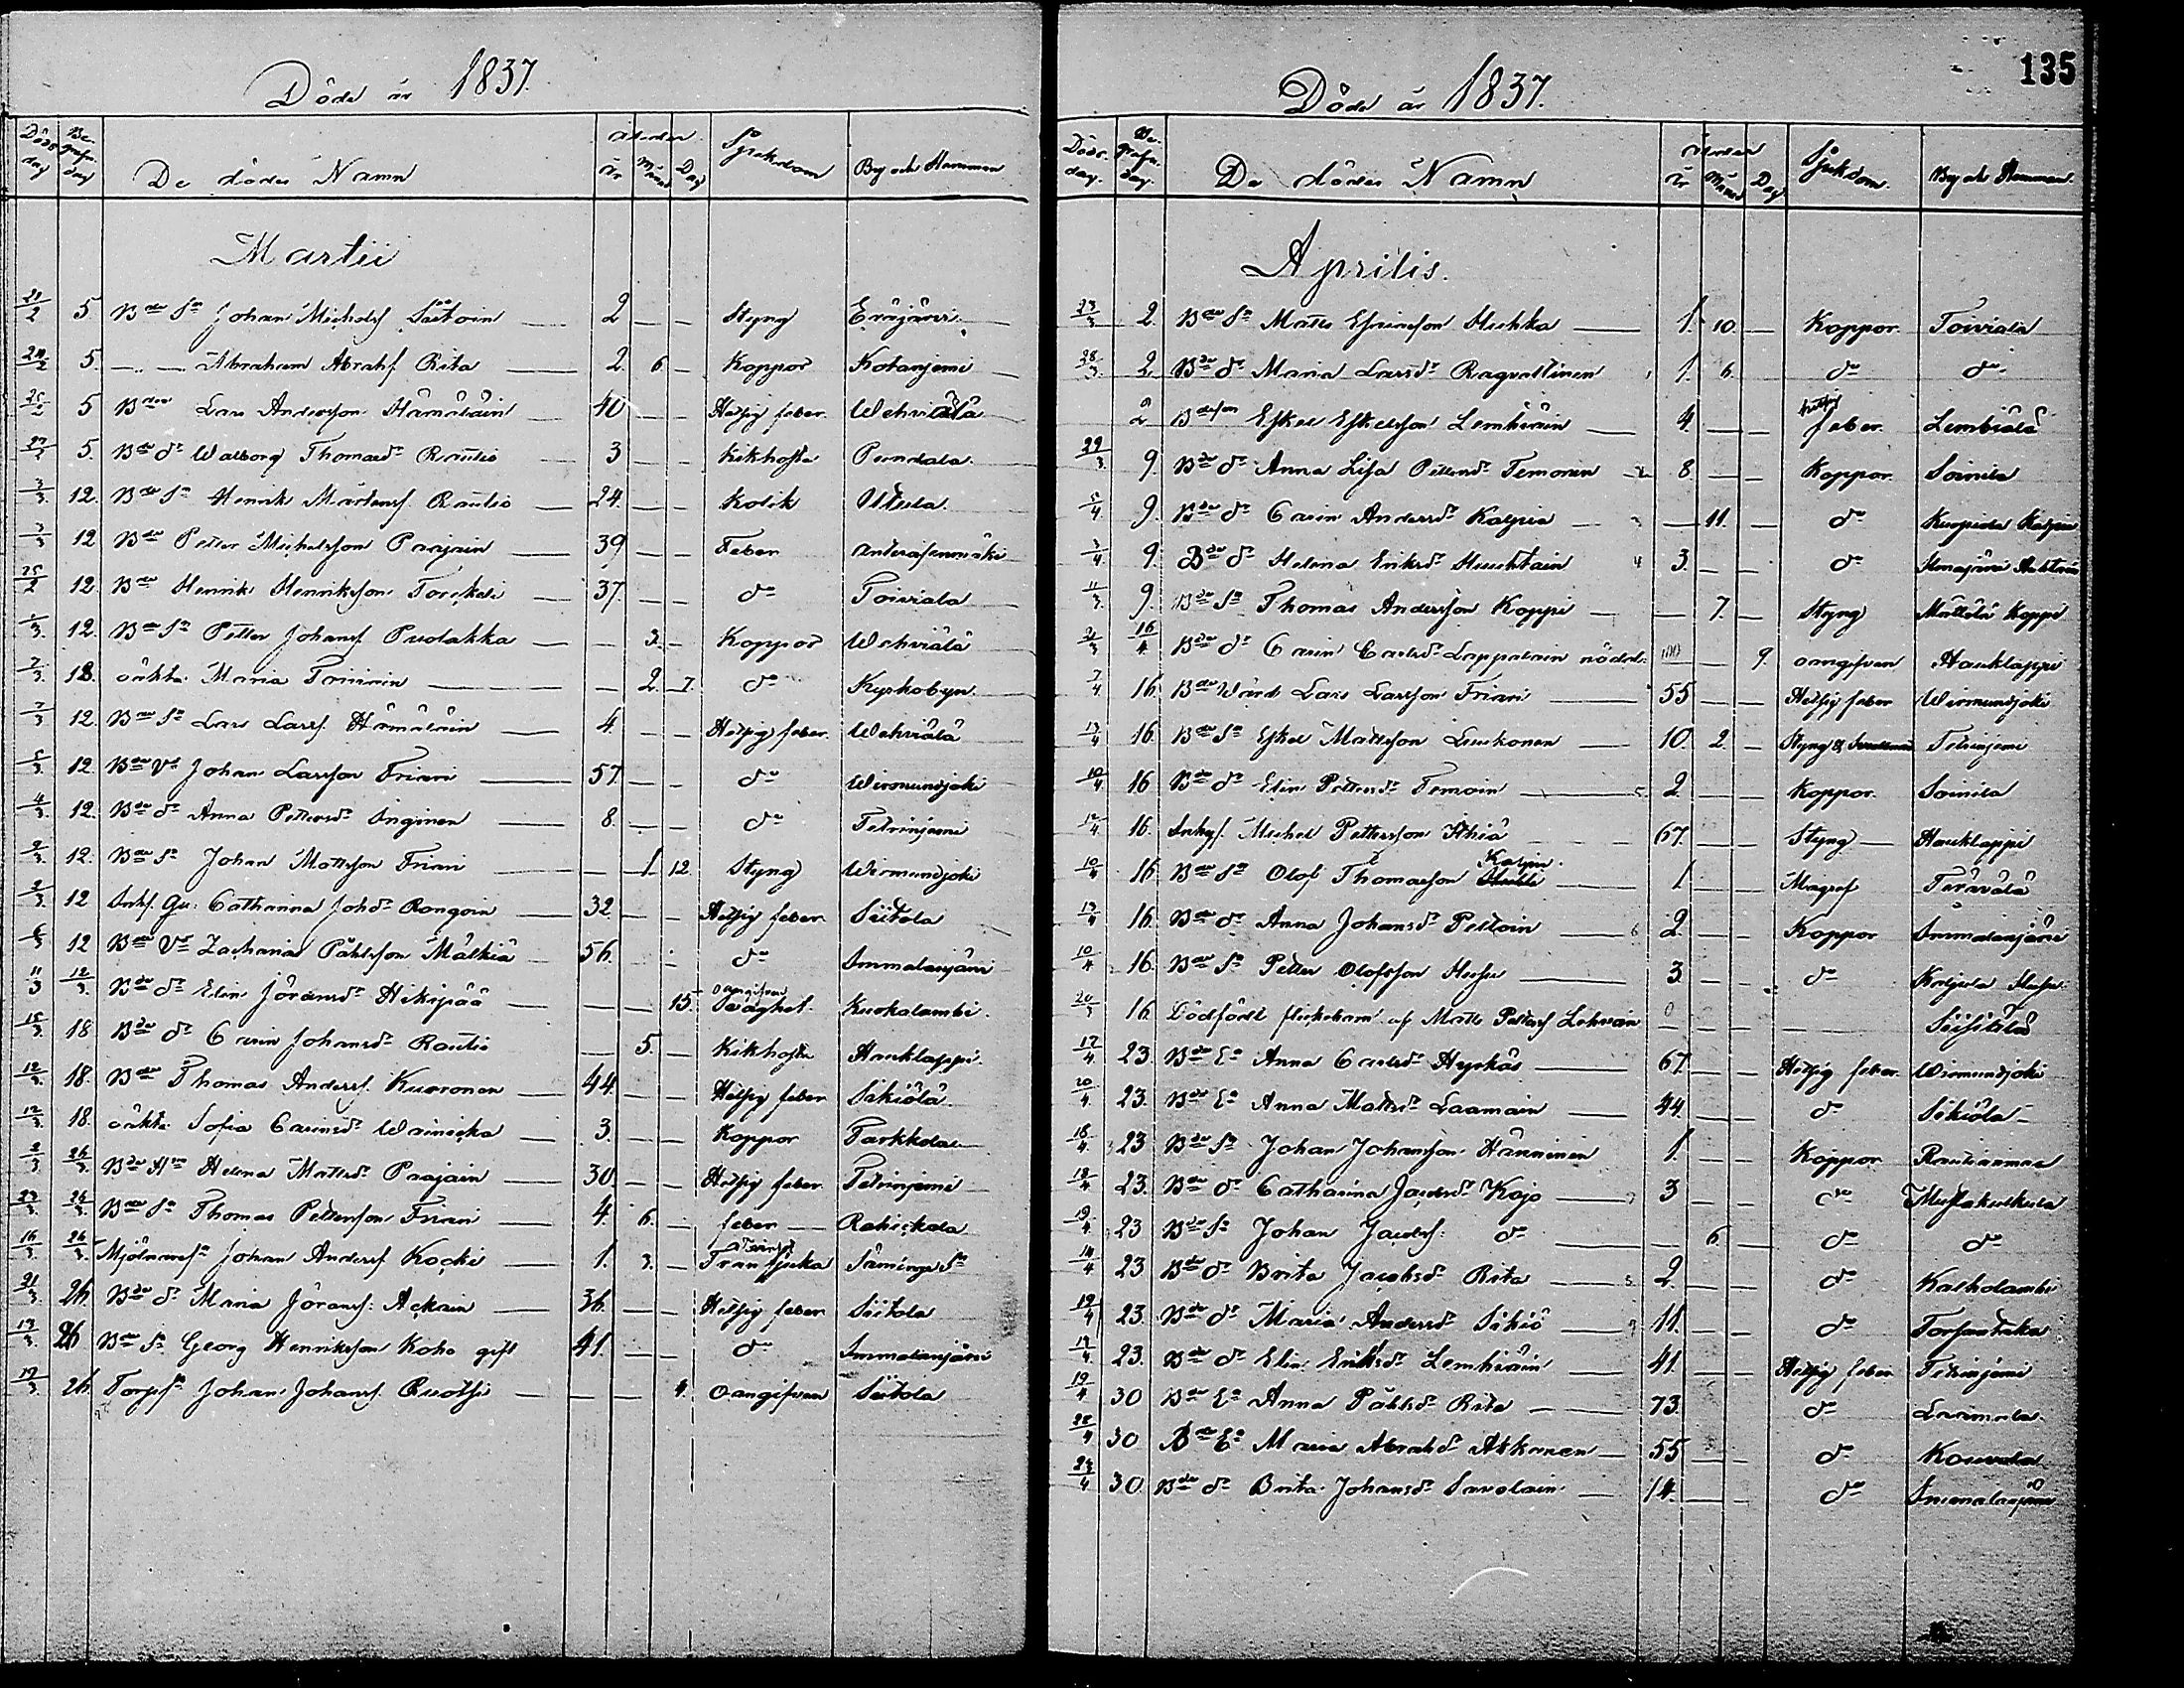 Döde år 1837.
Döds dag Begrafn. dag De dödes Namn Ålder år Månad Dag Sjukdom By och Hemman
Martii
21/2 5. Bde Sn Johan Michelsf Siitoin 2 — — Styng Eräjärvi
24/2 5. —„— Abraham Abrahf Rita 2 6 — Koppor Kotaniemi
25/2 5 Bden Lars Andersson Hämäläin 40 — — Hetsig feber. Wehviälä
5. Bde dr Walborg Thomasdr Rautio 3 — — Kikhosta Pundala.
3/3. 12. Bde Sn Henrik Mårtensf. Rautio 24. — — Kolik Utula
3/3 12 Bde Petter Michelsson Paajain 39 — — Feber
25/2 12. Bde Henrik Henriksson Torckeli 37. — — do Toiviala
12. Bde Sn Petter Johansf Pudakka — 3. — Koppor Wehviälä
7/3. 12. oäkta Maria Toiviain — 2. 7. do Kyrkobyn.
7/3 12. Bde Sn Lars Larsf. Hämäläin 4. — — Hetsig feber. Wehviälä
5/3. 12. Bde Vd Johan Larsson Friari 57. — — do Wirmundjoki
4/3. 12. Bde dr Anna Pettersdr Inginen 8. — — do Tetriniemi
2/3. 12. Bde Sn Johan Mattsson Friari — 1. 12. Styng Wirmundjoki
2/3. 12 Inhs. Gu. Catharina Johdr Rongoin 32 — — Hetsig feber. Siitola
6/3 12 Bde Vd Zacharias Påhlsson Mälkiä 56. — — do Immalanjärvi
11/3 12/3. Bde dr Elin Jöransdr Hikipää — — 15. oangifven Svaghet. Kurkalambi.
15/3. 18 Bde dr Carin Johansdr Rautio — 5. — Kikhosta Hauklappi.
12/3. 18. Bde Thomas Andersf. Kuronen 44. — — Hetsig feber Sikiölä.
12/3. 18. oäkta Sofia Carinsdr Wainicka 3. — — Koppor Parkkola
2/3 26/3. Bde Hu Helena Mattsdr Paajain 30 — — Hetsig feber. Tetriniemi
23/3. 26/3. Bde Sn Thomas Pettersson Friari 4. 6. — feber Rahickala
16/3. 26/3. Mjölnaresn Johan Andersf Kocki 1. 3. —
21/3. 26. Bde dr Maria Jöransf: Ackain 36. — — Hetsig feber Siitola
13/3. 26 Bde Sn Georg Henriksson Koho gift 41. — — do Immalanjärvi
19/3. 26. Torpsn Johan Johansf Ruotsi — — 4. oangifven Siitola
135
Döde år 1837.
Döds-dag. Begrafn. dag. De dödes Namn Ålder år Månad Dag Sjukdom. By och Hemman.
Aprilis.
23/3 2. Bde Sn Matts Huhka 1. 10. — Koppor. Toiviala
28/3. 2. Bde dr Maria Larsdr Ragvaltinen 1. 6. do do
2 Bdeson Eskel Eskelsson Lemhiäin 4. — — hetsig feber. Lembiälä
29/3. 9. Bde dr Anna Lisa Pettersdr Temoin 8. — — Koppor. Soinila
5/4 9. Bde dr Carin Andersdr Kalpio — 11. — do
3/4 9. Bde dr Helena Eriksdr Huuhtain 3. — — do
11/3. 9. Bde Sn Thomas Andersson Koppi — 7. — Styng Mattila Koppi
16/4. Bde dr Carin Carlsdr Lappalain nöddt. — 9. oangifven Hauklappi
7/4 16. Bde Värd Lars Larsson Friari 55 — — Hetsig feber Wirmundjoki
13/4 16. Bde Sn Eskel Mattsson Luukonen 10. 2. — Styng & Tetriniemi
10/4 16 Bde dr Elin Pettersdr Temoin 2. — — Koppor. Soinila
12/4 16. Inhys. Michel Pettersson Ithiä 67. — — Styng Hauklappi
10/4 16 Bde Sn Olof Thomasson Kalpio 1 — — Magref Terävälä
13/4 16. Bde dr Anna Johansdr Peltoin 2. — — Koppor Immalanjärvi
10/4 16. Bde Sn Petter Olofsson Husu 3 — — do Husu
20/3 16. Dödfödt flickebarn af Matts Pettersf Lohvain — — Siisiälä
17/4 23. Bde Ea Anna Carlsdr Hyrkäs 67. — — Hetsig feber Wirmundjoki
20/4. 23. Bde Ea Anna Mattsdr Laamain 44. — — do Sikiölä
18/4. 23 Bde Sn Johan Johansson Hänninen 1. — — Koppor Rautianmaa
18/4 23. Bde dr Catharina Jacobsdr Kojo 3 — — do
19/4. 23 Bde Sn Johan Jacobsf. do — 6. — do do
14/4 23 Bde dr Brita Jacobsdr Rita 2. — — do Kalholambi
19/4 23. Bde dr Maria Andersdr Sikiö 11. — — do Torsantaka
17/4. 23. Bde dr Elin Eriksdr Lemhiäin 41. — — Hetsig feber Tetriniemi
19/4 30 Bde Ea Anna Påhlsdr Rita 73. — — do
25/4 30 Bde Ea Maria Abrahdr Akkanen 55 — — do Kouvola
23/4 30. Bde dr Brita Johansdr Savolain 14. — — do Immalanjärvi